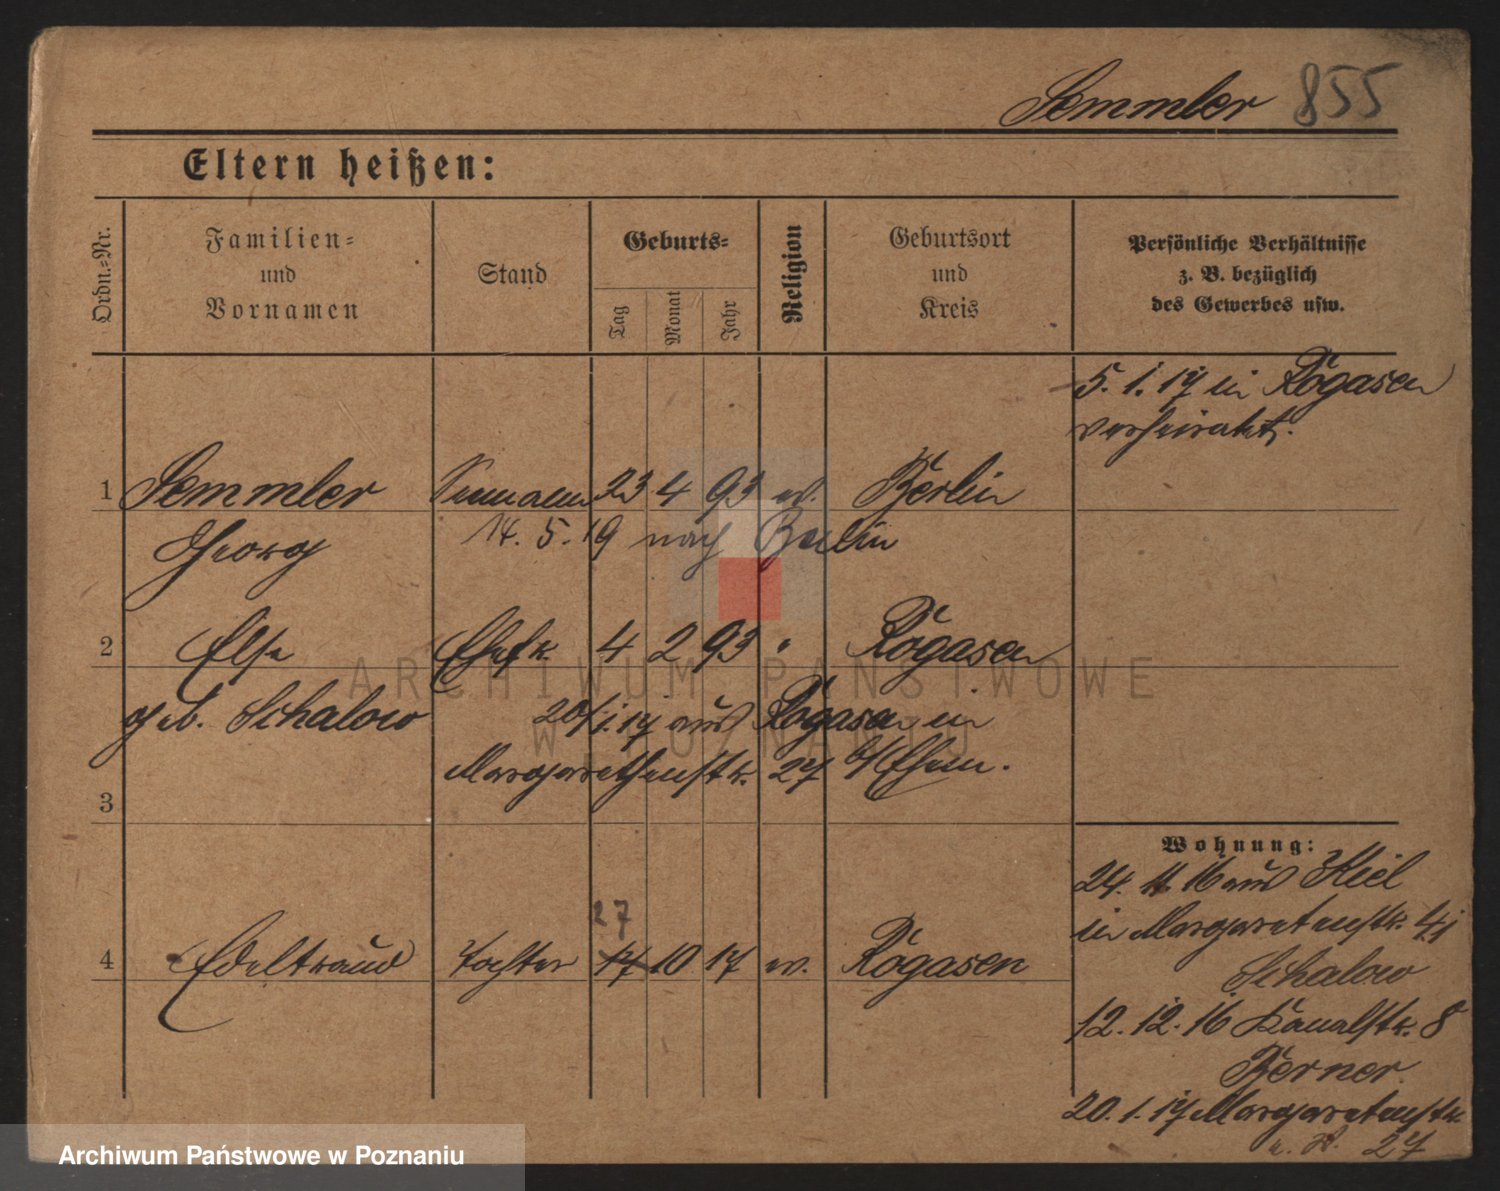 Semmler 855
Eltern heißen:
Ordn.-Nr.
Familien-
und
Vornamen
Stand
Geburts-
Tag
Monat
Jahr
Religion
Geburtsort
und
Kreis
Persönliche Verhältnisse
z. B. bezüglich
des Gewerbes usw.
5. 1. 17 in Rogasen
verheiratet.
1 Semmler 23 4 93 ev. Berlin
Georg 14. 5. 19 nach Berlin
2 Else Ehefr. 4 2 93 " Rogasen
geb. Schalow 20/1. 17 aus Rogasen in
Margarethenstr. 27 b/Ehem.
3
4 Edeltraud Tochter 17 27 10 17 ev. Rogasen
Wohnung:
24. 11. 16 aus Kiel
in Margaretenstr. 4
Schalow
12. 12. 16 Kanalstr. 8
Berner
20. 1. 17 Margaretenstr.
27
ARCHIWUM PAŃSTWOWE
W POZNANIU
Archiwum Państwowe w Poznaniu